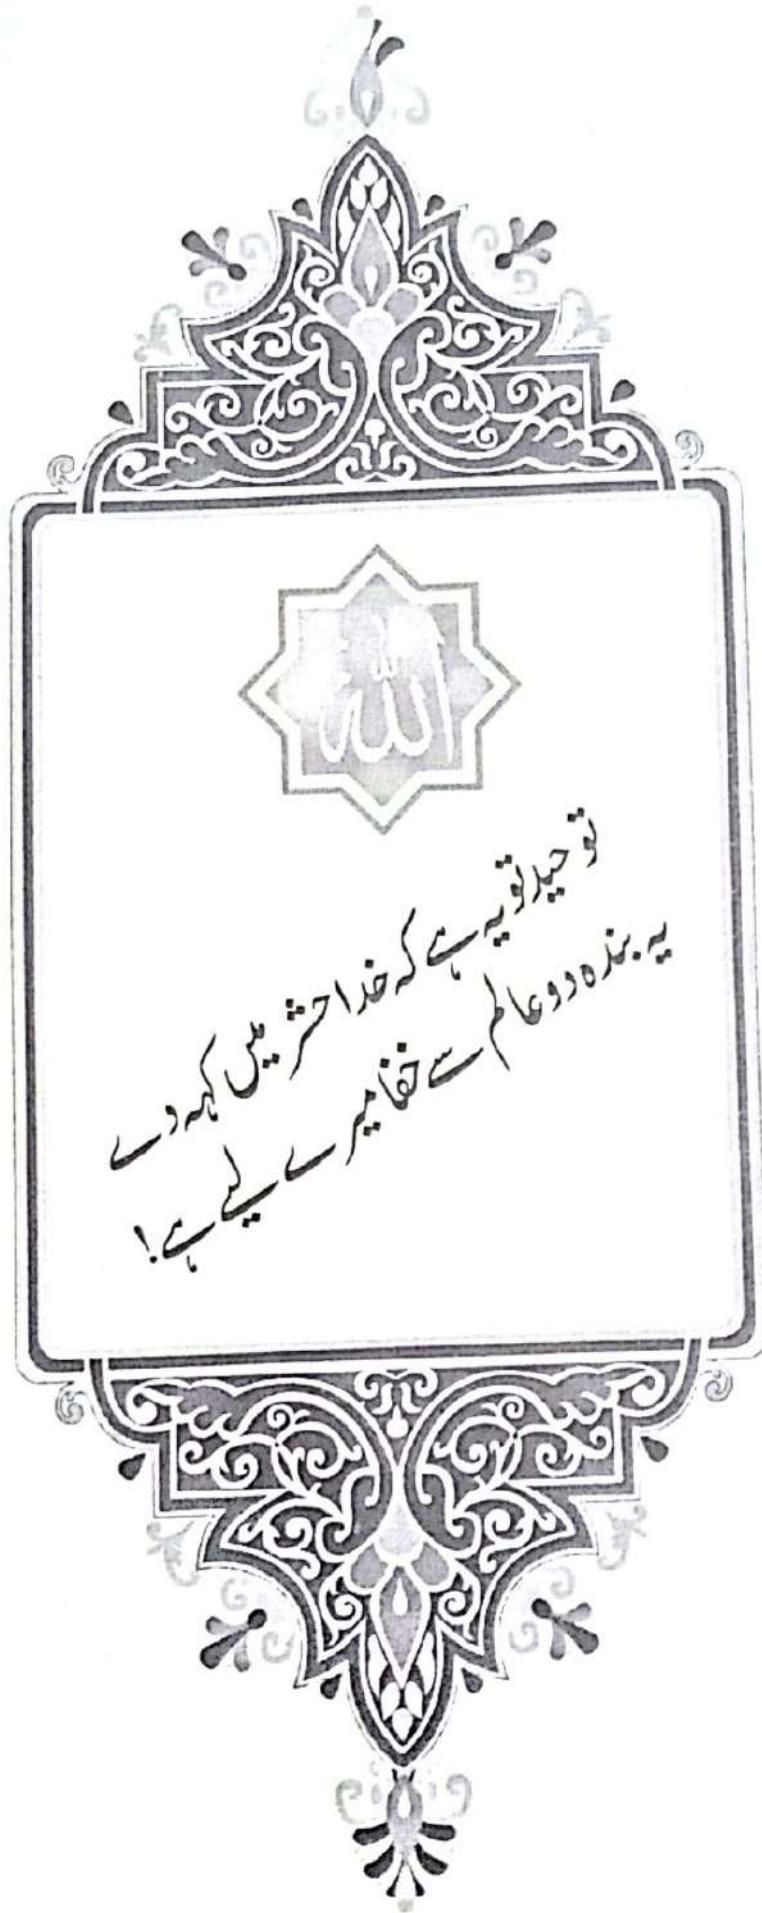 اللہ
توحید تو یہ ہے کہ خدا حشر میں کہہ دے
یہ بندہ دو عالم سے خفا میرے لیے ہے!